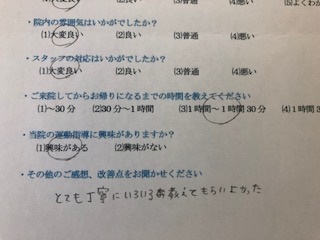 ・院内の雰囲気はいかがでしたか?
(1)大変良い (2)良い (3)普通 (4)悪い
・スタッフの対応はいかがでしたか?
(1)大変良い (2)良い (3)普通 (4)悪い
・ご来院してからお帰りになるまでの時間を教えてください
(1)～30分 (2)30分～1時間 (3)1時間～1時間30分 (4)1時間3
・当院の運動指導に興味がありますか?
(1)興味がある (2)興味がない
・その他のご感想、改善点をお聞かせください
とても丁寧にいろいろ教えてもらいよかった